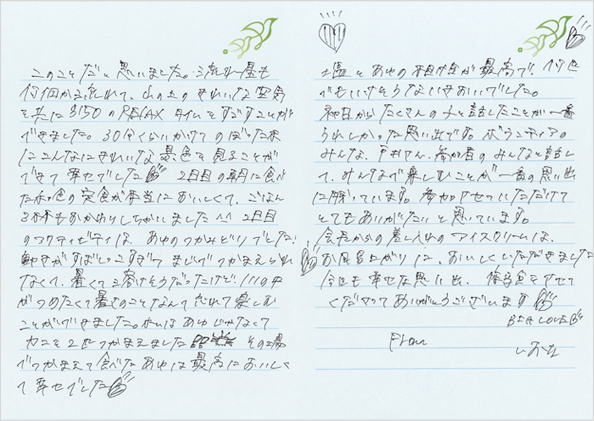 このことだと思いました。流れ星も
何個か流れて、山の上のきれいな空気
と共に3150のRELAXタイムをすごすことが
できました。30分くらいかけてのぼった末
にこんなにきれいな景色を見ることが
できて幸せでした 2日目の朝に食べ
た の定食が本当においしくて、ごはん
3杯もおかわりしちゃいました^^ 2日目
のアクティビティは、あゆのつかみどりでした!
動きがすばしっこすぎて まじでつかまえられ
なくて、暑くて溶けそうだったけど、川の中
がつめたくて暑さのことなんて忘れて楽しむ
ことができました。 はあゆじゃなくて
カニを2匹つかまえました その場
でつかまえて食べたあゆは最高においしく
て幸せでした
塩とあゆの相性が最高で、何匹
でもいけそうないきおいでした。
初日からたくさんの人と話したことが一番
うれしかった思い出です。ボランティアの
みんな、戸井さん、参加者のみんなと話し
て、みんなで楽しむことが一番の思い出
に残っています。参加させていただけて
とてもありがたいと思っています。
会長からの差し入れのアイスクリームは、
お風呂上がりに、おいしくいただきました
今回も幸せな思い出、 をさせて
くださってありがとうございます
From